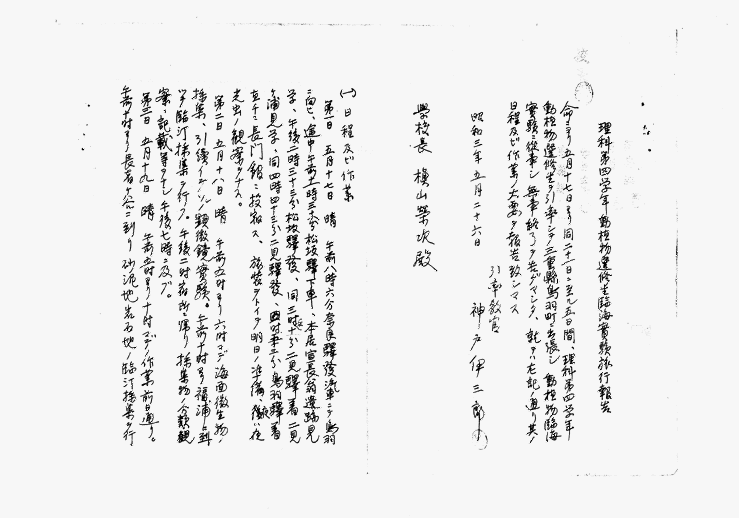 理科第四学年動植物選修生臨海實驗旅行報告
命ニヨリ五月十七日ヨリ同二十一日ニ至ル五日間、理科第四学年
動植物選修生ヲ引率シテ三重縣鳥羽町ニ出張シ動植物臨海
實驗ニ從事シ無事終了ヲ告グマシタ、就テハ左記ノ通リ其ノ
日程及ビ作業ノ大要ヲ報告致シマス
昭和三年五月二十六日
引率教官
神戸伊三郎
學校長 槇山榮次殿
(一) 日程及ビ作業
第一日 五月十七日 晴 午前八時六分奈良驛發汽車ニテ鳥羽
ニ向ヒ、途中午前十一時三十分松坂驛下車、本居宣長翁遺跡見
学、午後二時三十三分松坂驛發、同三時十分二見驛着二見
ヶ浦見学、同四時四十三分二見驛發、四時五十二分鳥羽驛着
直チニ長門館ニ投宿ス、旅裝ヲトイテ明日ノ準備、夜
光虫ノ觀察ヲナス。
第二日 五月十八日 晴 午前五時ヨリ六時マデ海面微生物ノ
採集、引續イテ ノ顯微鏡實驗。午前十時ヨリ福浦ニ到
リテ臨汀採集ヲ行フ。午後二時宿所ニ帰リ採集物ノ分類觀
察、記載等ヲナシ午後七時ニ及ブ。
第三日 五月十九日 晴 午前五時ヨリ十時マデノ作業前日ノ通リ。
午前十時ヨリ長者 ニ到リ砂泥地岩石地ノ臨汀採集ヲ行